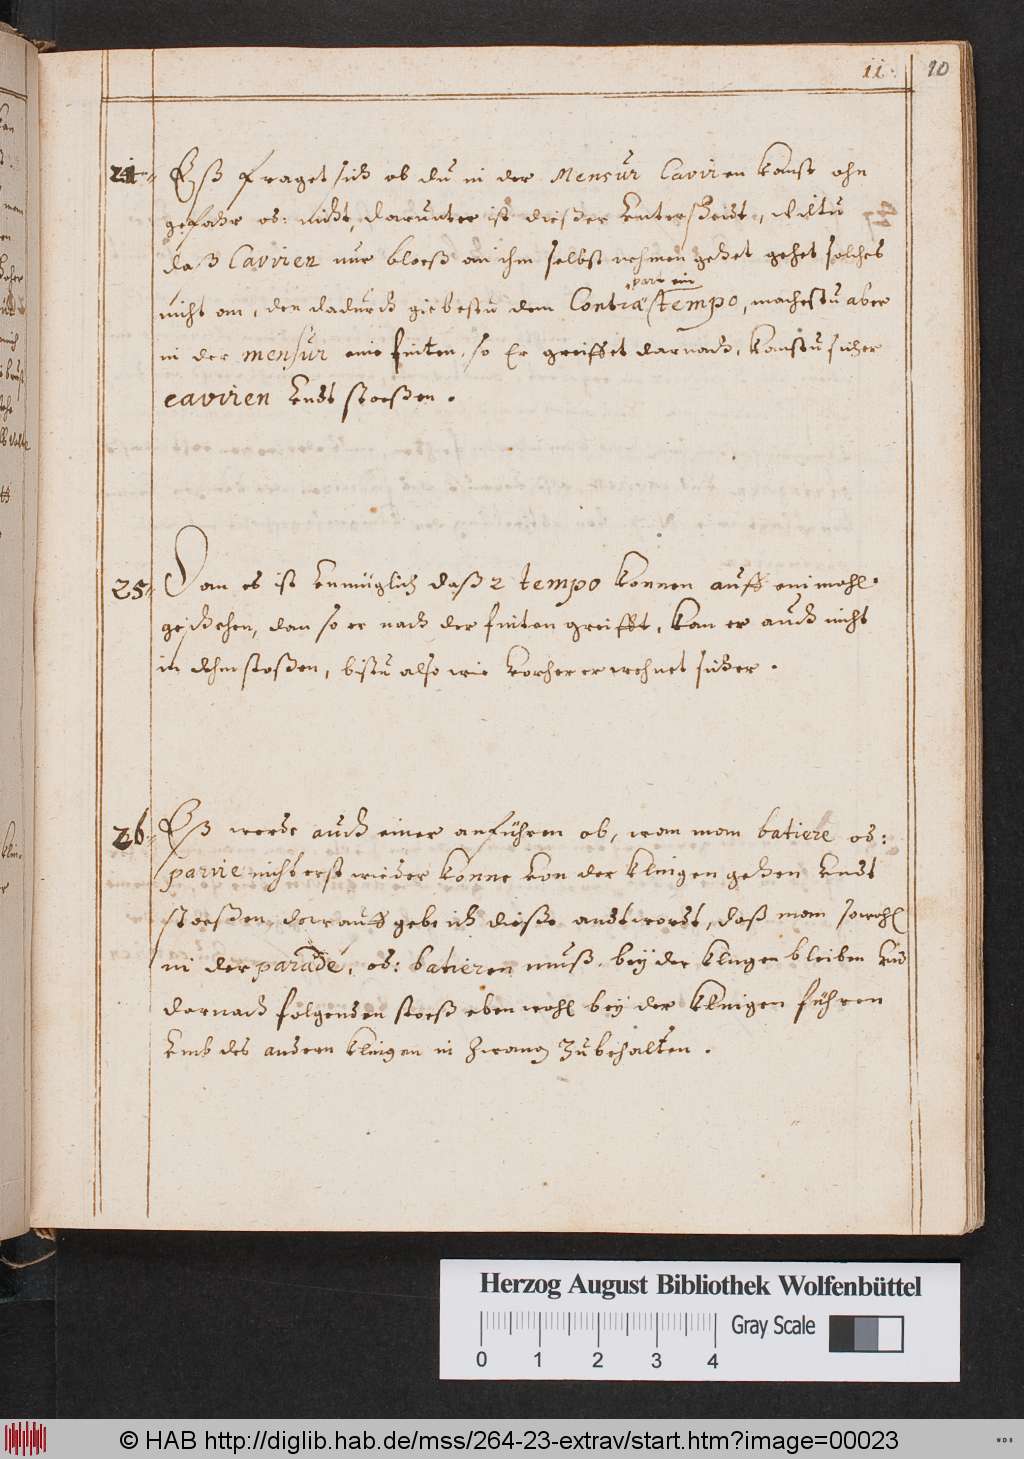 11.
10
24.
Eß fraget sich ob du in der Mensur Caviren kanst ohn
gefahr od: nicht, darunter ist dießer Unterscheidt, wiltu
daß Caviren nur bloeß an ihm selbst nehmen gehet gehet solches
part ein
nicht an, den dadurch giebestu dem Contrae tempo, machestu aber
in der mensur eine finten, so Er greiffet darnach, kanstu sicher
caviren Undt stoeßen.
25.
Dan es ist Unmüglich daß 2 tempo konnen auff einmahl
geschehen, dan so er nach der finten greifft, kan er auch nicht
in dehm stoßen, bistu also wie vorher erwehnet sicher.
26.
Eß werde auch einer anführen ob, wan man batiere od:
parire nicht erst wieder könne von der klingen gehen Undt
stoeßen, darauff gebe ich dieße andtwordt, daß man sowohl
in der parade, od: batieren muß bey der klingen bleiben Und
darnach folgenden stoeß eben wohl bey der klingen führen
Umb des andern klingen in Zwang Zu behalten.
Herzog August Bibliothek Wolfenbüttel
Gray Scale
0 1 2 3 4
© HAB http://diglib.hab.de/mss/264-23-extrav/start.htm?image=00023